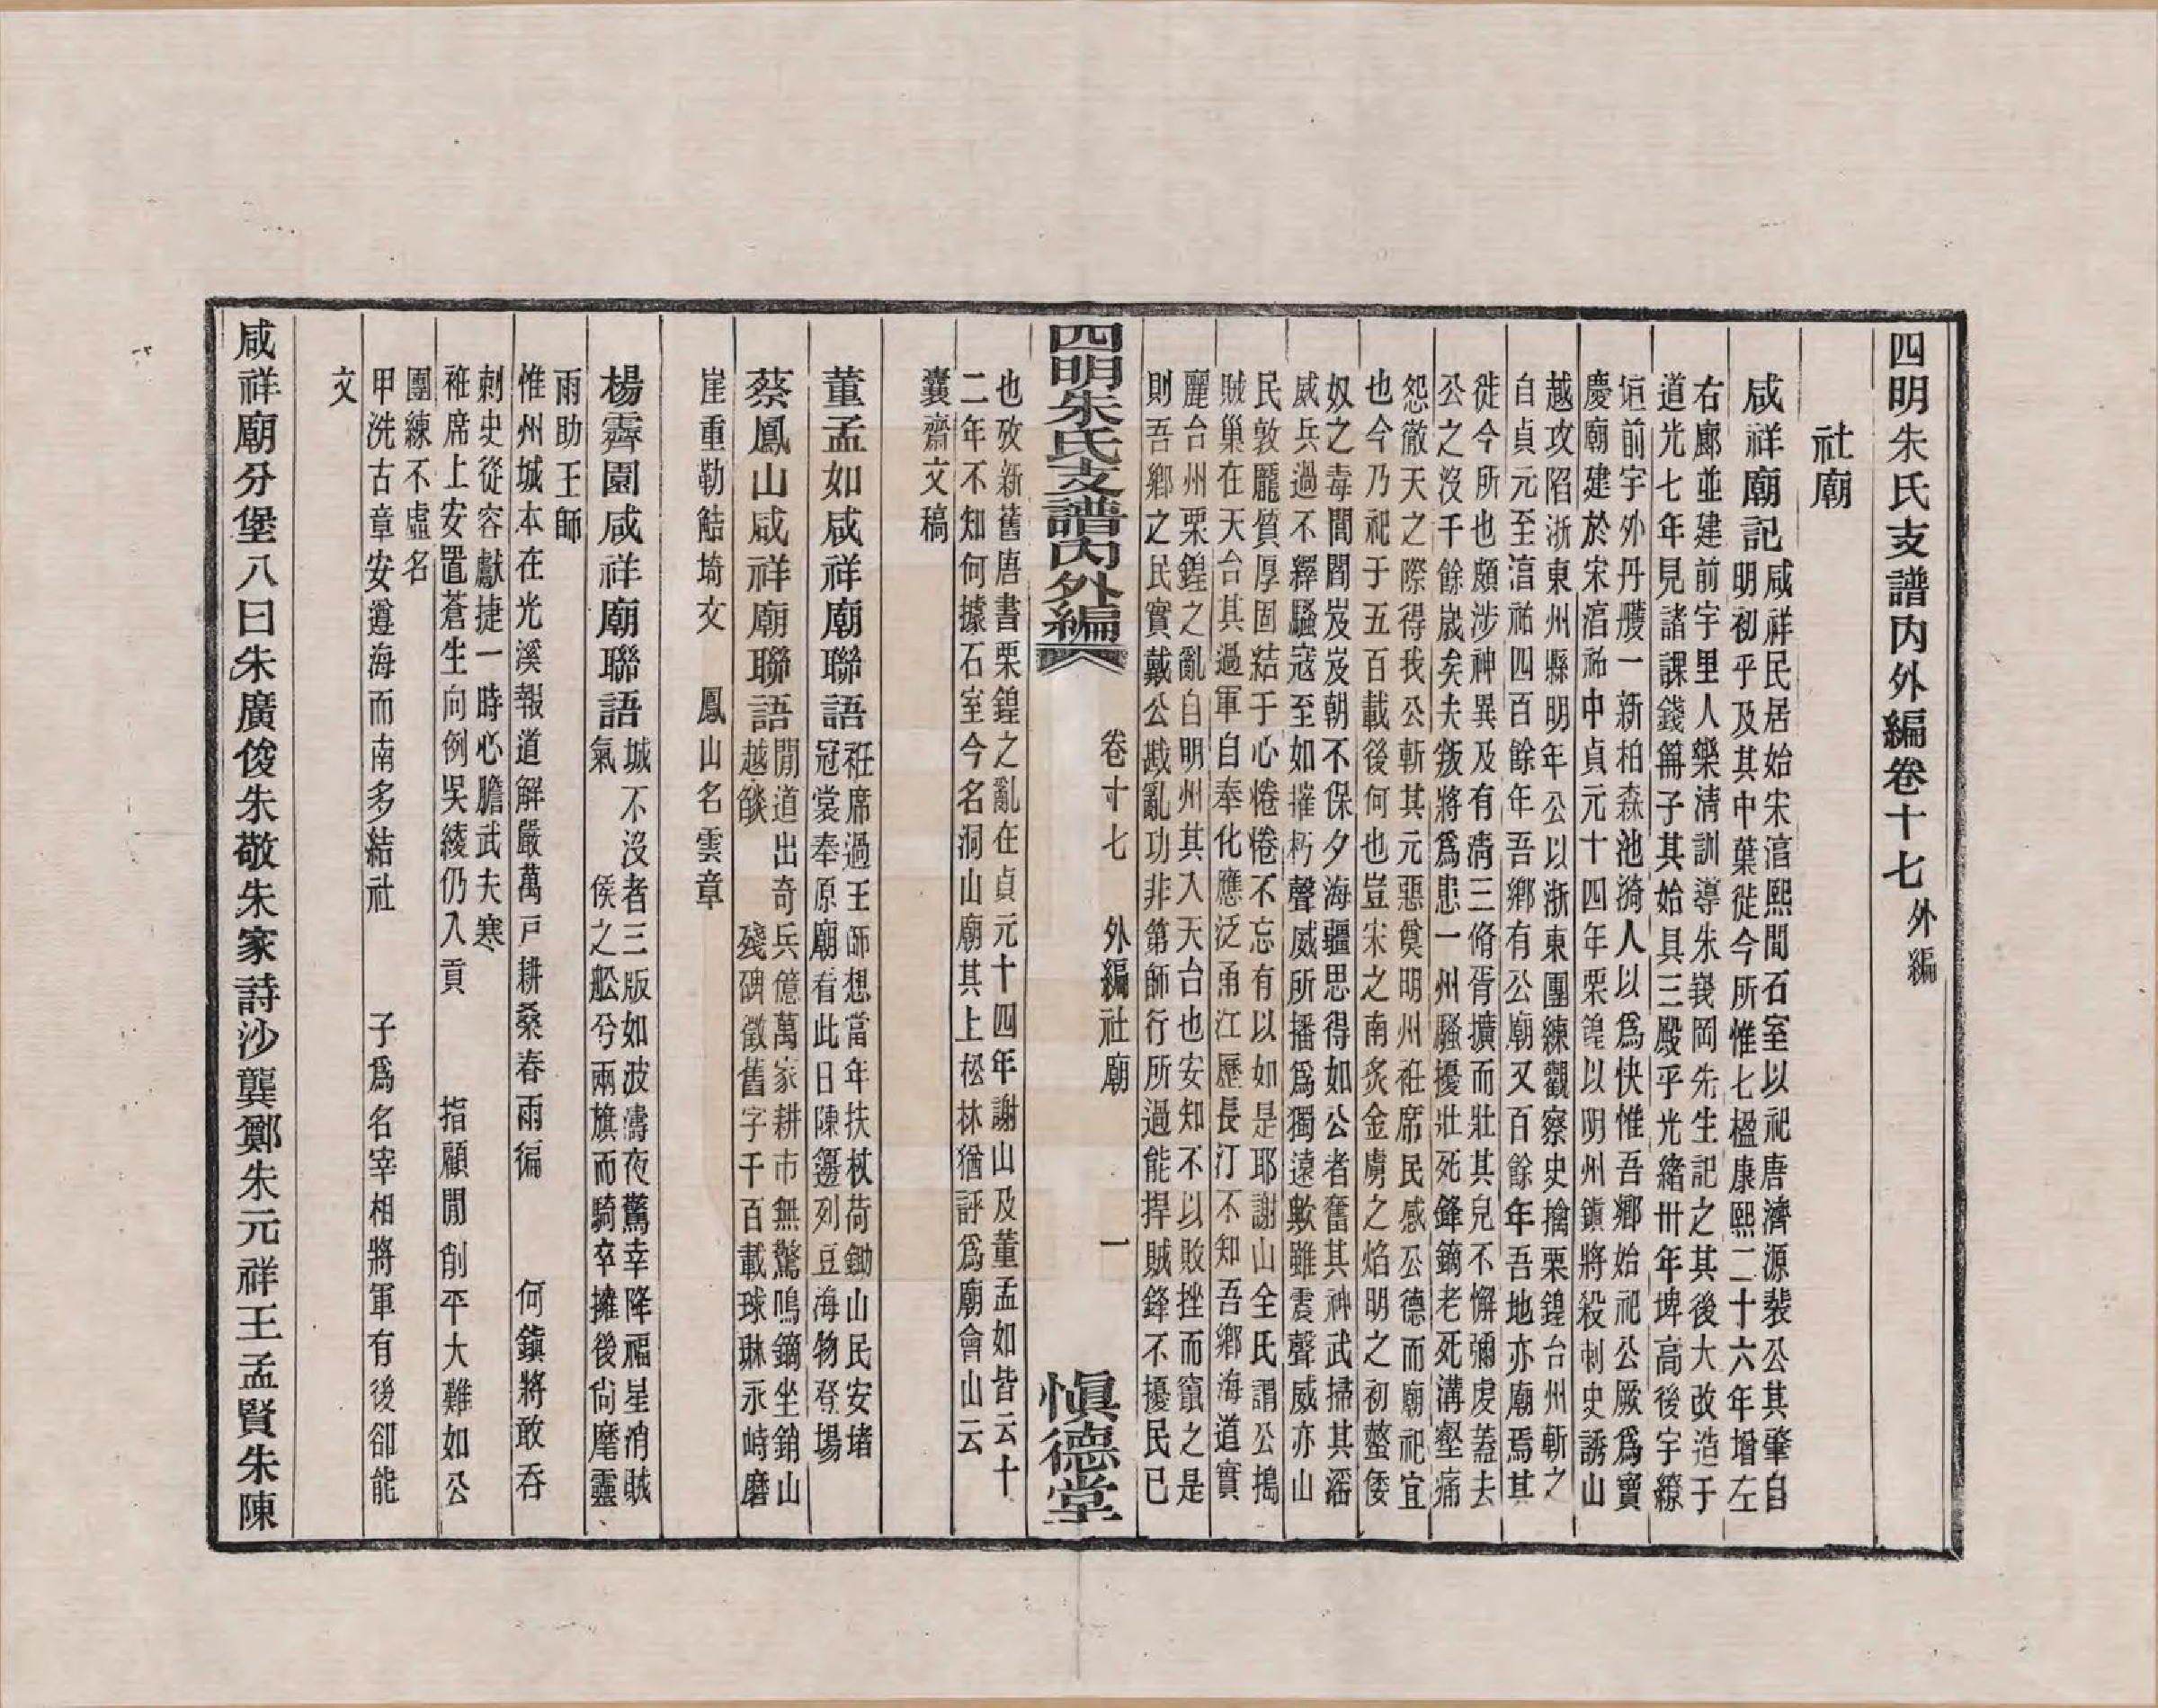 四明朱氏支譜內外編卷十七外編
社廟
咸祥廟記
咸祥民居始宋湻熙間石室以祀唐濟源裴公其肇自
明初乎及其中葉徙今所惟七楹康熙二十六年增左
右廊並建前宇里人樂清訓導朱巽岡先生記之其後大改造于
道光七年見諸課錢冊子其始具三殿乎光緒卅年埤高後宇繚
垣前宇外丹雘一新柏森池漪人以爲快惟吾鄉始祀公厥爲寶
慶廟建於宋湻祐中貞元十四年栗鍠以明州鎭將殺刺史誘山
越攻陷浙東州縣明年公以浙東團練觀察史擒栗鍠台州斬之
自貞元至湻祐四百餘年吾鄉有公廟又百餘年吾地亦廟焉其
徙今所也頗涉神異及有淸三脩胥擴而壯其皃不懈彌虔蓋去
公之沒千餘歲矣夫叛將爲患一州騷擾壯死鋒鏑老死溝壑痛
怨徹天之際得我公斬其元惡奠明州袵席民感公德而廟祀宜
也今乃祀于五百載後何也豈宋之南炙金虜之焰明之初螫倭
奴之毒閭閻岌岌朝不保夕海疆思得如公者奮其神武掃其滛
威兵過不釋騷寇至如摧朽聲威所播爲獨遠歟雖震聲威亦山
民敦龐質厚固結于心惓惓不忘有以如是耶謝山全氏謂公搗
賊巢在天台其過軍自奉化應泛甬江歷長汀不知吾鄉海道實
麗台州栗鍠之亂自明州其入天台也安知不以敗挫而竄之是
則吾鄉之民實戴公戡亂功非第師行所過能捍賊鋒不擾民已
四明朱氏支譜內外編 卷十七 外編社廟 一 愼德堂
也攷新舊唐書栗鍠之亂在貞元十四年謝山及董孟如皆云十
二年不知何據石室今名洞山廟其上松林猶評爲廟會山云
囊齋文稿
董孟如咸祥廟聯語
袵席過王師想當年扶杖荷鋤山民安堵
冠裳奉原廟看此日陳籩列豆海物登場
蔡鳳山咸祥廟聯語
閒道出奇兵億萬家耕市無驚鳴鏑坐銷山
越燄 殘碑徵舊字千百載球琳永峙磨
崖重勒鮚埼文 鳳山名雲章
楊霽園咸祥廟聯語
城不沒者三版如波濤夜驚幸降福星消賊
氣 侯之舩兮兩旗而騎卒擁後尙麾靈
雨助王師
惟州城本在光溪報道解嚴萬戸耕桑春雨徧 何鎭將敢吞
刺史從容獻捷一時心膽武夫寒
袵席上安置蒼生向例吳綾仍入貢 指顧閒削平大難如公
團練不虛名
甲洗古章安遵海而南多結社 子爲名宰相將軍有後卻能
文
咸祥廟分堡八曰朱廣俊朱敬朱家詩沙龔鄭朱元祥王孟賢朱陳